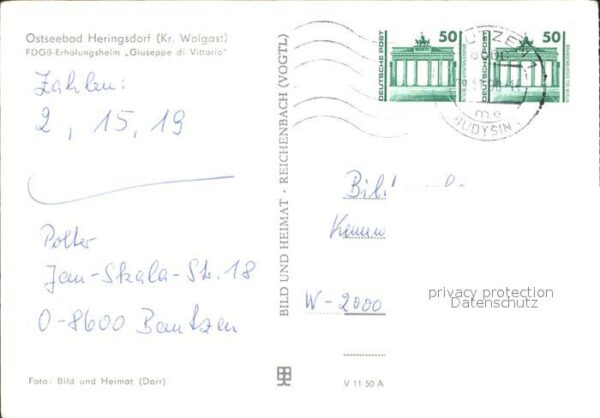 Ostseebad Heringsdorf (Kr. Wolgast)
FDGB-Erholungsheim „Giuseppe di Vittorio"
Zahlen:
2, 15, 19
Polter
Jan-Skala-Str. 18
O-8600 Bautzen
Foto: Bild und Heimat (Darr)
BILD UND HEIMAT · REICHENBACH (VOGTL)
V 11 50 A
50
DEUTSCHE POST
50
DEUTSCHE POST
BUDYSIN
me
W-2000
privacy protection
Datenschutz